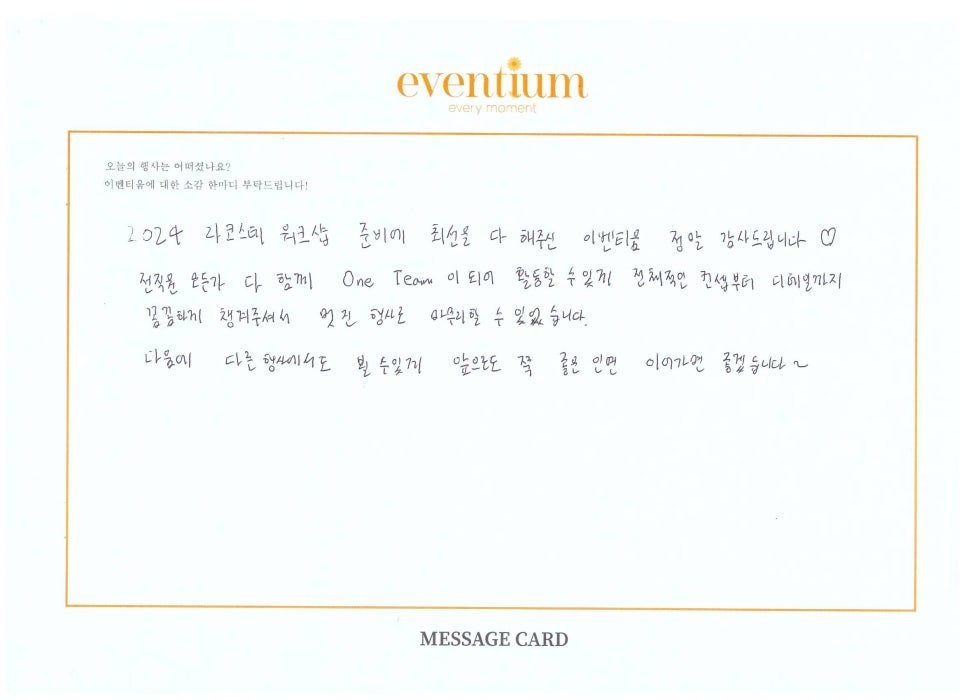 eventium
every moment
오늘의 행사는 어떠셨나요?
이벤티움에 대한 소감 한마디 부탁드립니다!
2024 라코스테 워크샵 준비에 최선을 다 해주신 이벤티움 정말 감사드립니다 ♡
전직원 모두가 다 함께 One Team 이 되어 활동할 수 있게 전체적인 컨셉부터 디테일까지
꼼꼼하게 챙겨주셔서 멋진 행사로 마무리할 수 있었습니다.
다음에 다른 행사에서도 뵐 수있게 앞으로도 쭉 좋은 인연 이어가면 좋겠습니다 ~
MESSAGE CARD